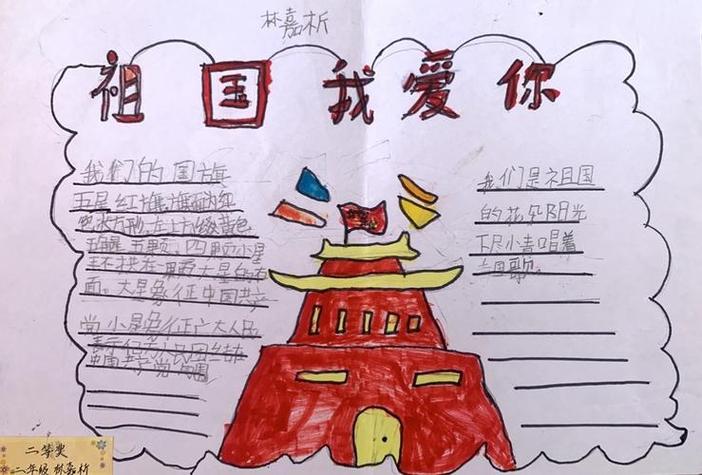 林嘉析
祖国我爱你
我们的国旗
五星红旗旗面为红
色长方形,左上方缀黄色
五角星五颗,四颗小星
环拱在一颗大星的右
面。大星象征中国共产
党小星象征广大人民
表示
围
我们是祖国
的花朵阳光
下尽小吉唱着
国歌。
二等奖
二年级 林嘉析